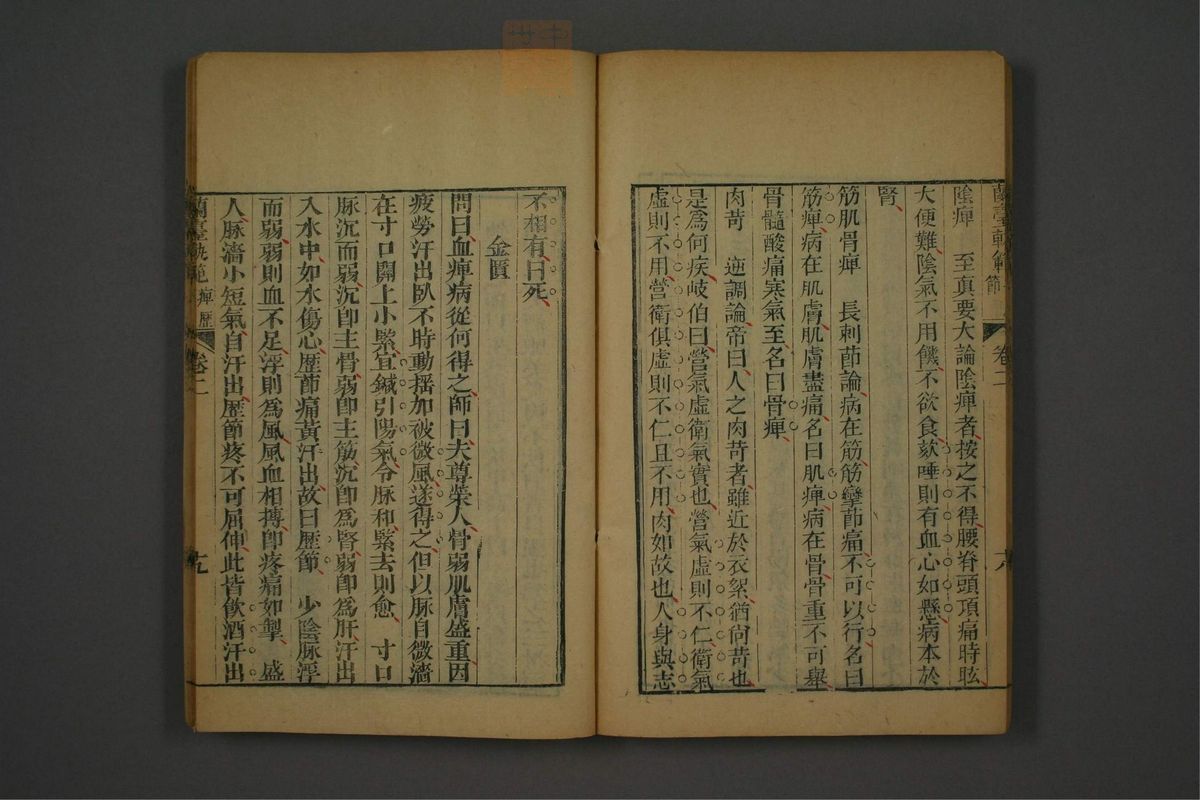 蘭臺軌範 節 卷二 十八
陰痺　至真要大論陰痺者按之不得腰脊頭項痛時眩
大便難陰氣不用饑不欲食欬唾則有血心如懸病本於
腎
筋肌骨痺　長刺節論病在筋筋攣節痛不可以行名曰
筋痺病在肌膚肌膚盡痛名曰肌痺病在骨骨重不可舉
骨髓酸痛寒氣至名曰骨痺
肉苛　逆調論帝曰人之肉苛者雖近於衣絮猶尙苛也
是爲何疾岐伯曰營氣虛衛氣實也營氣虛則不仁衛氣
虛則不用營衛俱虛則不仁且不用肉如故也人身與志
不相有曰死
金匱
問曰血痺病從何得之師曰夫尊榮人骨弱肌膚盛重因
疲勞汗出臥不時動搖加被微風遂得之但以脈自微濇
在寸口關上小緊宜鍼引陽氣令脈和緊去則愈　寸口
脈沉而弱沉卽主骨弱卽主筋沉卽爲腎弱卽爲肝汗出
入水中如水傷心歷節痛黃汗出故曰歷節　少陰脈浮
而弱弱則血不足浮則爲風風血相搏卽疼痛如掣　盛
人脈濇小短氣自汗出歷節疼不可屈伸此皆飲酒汗出
蘭臺軌範 痺歷 卷二 十九